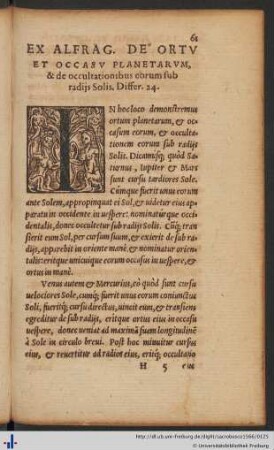 61
EX ALFRAG. DE ORTV
ET OCCASV PLANETARVM,
& de occultationibus eorum sub
radijs Solis. Differ. 24.
IN hoc loco demonstremus
ortum planetarum, & oc-
casum eorum, & occulta-
tionem eorum sub radijs
Solis. Dicamusq́; quòd Sa-
turnus, Iupiter & Mars
sunt cursu tardiores Sole.
Cúmque fuerit unus eorum
ante Solem, appropinquat ei Sol, & uidetur eius ap-
paratus in occidente in uespere: nominaturque occi-
dentalis, donec occultetur sub radijs Solis. Cúq; tran
sierit eum Sol, per cursum suum, & exierit de sub ra-
dijs, apparebit in oriente manè, & nominatur orien-
talis: eritque unicuique eorum occasus in uespere, &
ortus in manè.
Venus autem & Mercurius, eò quòd sunt cursu
uelociores Sole, cumq; fuerit unus eorum coniunctus
Soli, fueritq; cursu directus, uincit eum, & transiens
egreditur de sub radijs, eritque ortus eius in occasu
uespere, donec ueniat ad maximã suam longitudinẽ
à Sole in circulo breui. Post hoc minuitur cursus
eius, & reuertitur ad radios eius, eritq; occultatio
H 5 eius
http://dl.ub.uni-freiburg.de/diglit/sacrobosco1566/0125
© Universitätsbibliothek Freiburg